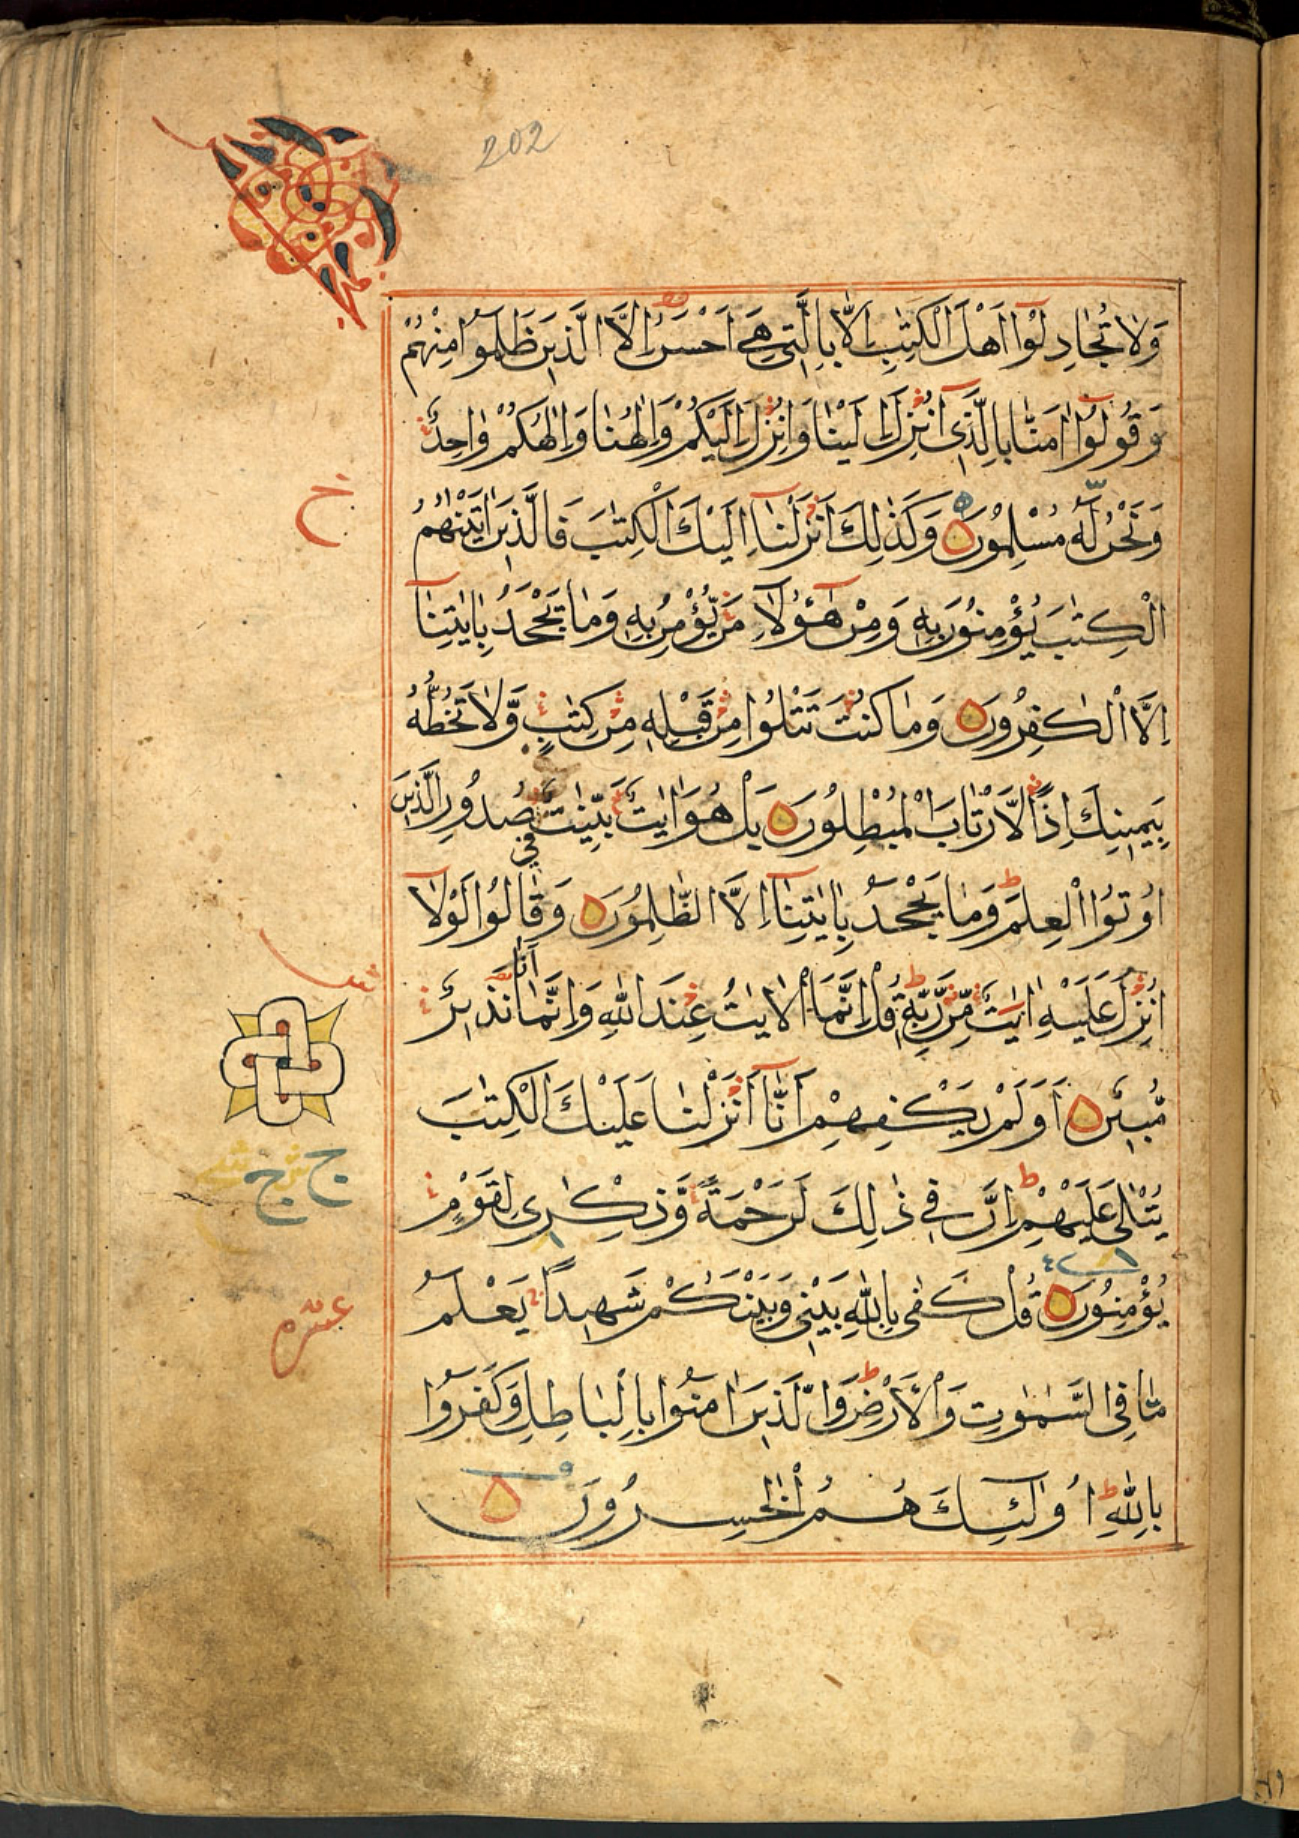 202
وَلَا تُجَادِلُوٓا اَهْلَ الْكِتٰبِ اِلَّا بِالَّتِي هِيَ اَحْسَنُ اِلَّا الَّذِينَ ظَلَمُوا مِنْهُمْ
وَقُولُوٓا اٰمَنَّا بِالَّذِيٓ اُنْزِلَ اِلَيْنَا وَاُنْزِلَ اِلَيْكُمْ وَاِلٰهُنَا وَاِلٰهُكُمْ وَاحِدٌ
وَنَحْنُ لَهُ مُسْلِمُونَ وَكَذٰلِكَ اَنْزَلْنَآ اِلَيْكَ الْكِتٰبَ فَالَّذِينَ اٰتَيْنٰهُمُ
ح
الْكِتٰبَ يُؤْمِنُونَ بِهِ وَمِنْ هٰٓؤُلَاءِ مَنْ يُؤْمِنُ بِهِ وَمَا يَجْحَدُ بِاٰيٰتِنَآ
اِلَّا الْكٰفِرُونَ وَمَا كُنْتَ تَتْلُوا مِنْ قَبْلِهِ مِنْ كِتٰبٍ وَّلَا تَخُطُّهُ
بِيَمِينِكَ اِذًا لَّارْتَابَ الْمُبْطِلُونَ بَلْ هُوَ اٰيٰتٌ بَيِّنٰتٌ فِي صُدُورِ الَّذِينَ
اُوتُوا الْعِلْمَ ط وَمَا يَجْحَدُ بِاٰيٰتِنَآ اِلَّا الظّٰلِمُونَ وَقَالُوا لَوْلَآ
اُنْزِلَ عَلَيْهِ اٰيٰتٌ مِّنْ رَّبِّهِ ط قُلْ اِنَّمَا الْاٰيٰتُ عِنْدَ اللّٰهِ وَاِنَّمَآ اَنَا نَذِيرٌ
مُّبِينٌ اَوَلَمْ يَكْفِهِمْ اَنَّآ اَنْزَلْنَا عَلَيْكَ الْكِتٰبَ
يُتْلٰى عَلَيْهِمْ ط اِنَّ فِي ذٰلِكَ لَرَحْمَةً وَّذِكْرٰى لِقَوْمٍ
يُؤْمِنُونَ قُلْ كَفٰى بِاللّٰهِ بَيْنِي وَبَيْنَكُمْ شَهِيدًا يَعْلَمُ
عشر
مَا فِي السَّمٰوٰتِ وَالْاَرْضِ ط وَالَّذِينَ اٰمَنُوا بِالْبَاطِلِ وَكَفَرُوا
بِاللّٰهِ ط اُولٰٓئِكَ هُمُ الْخٰسِرُونَ